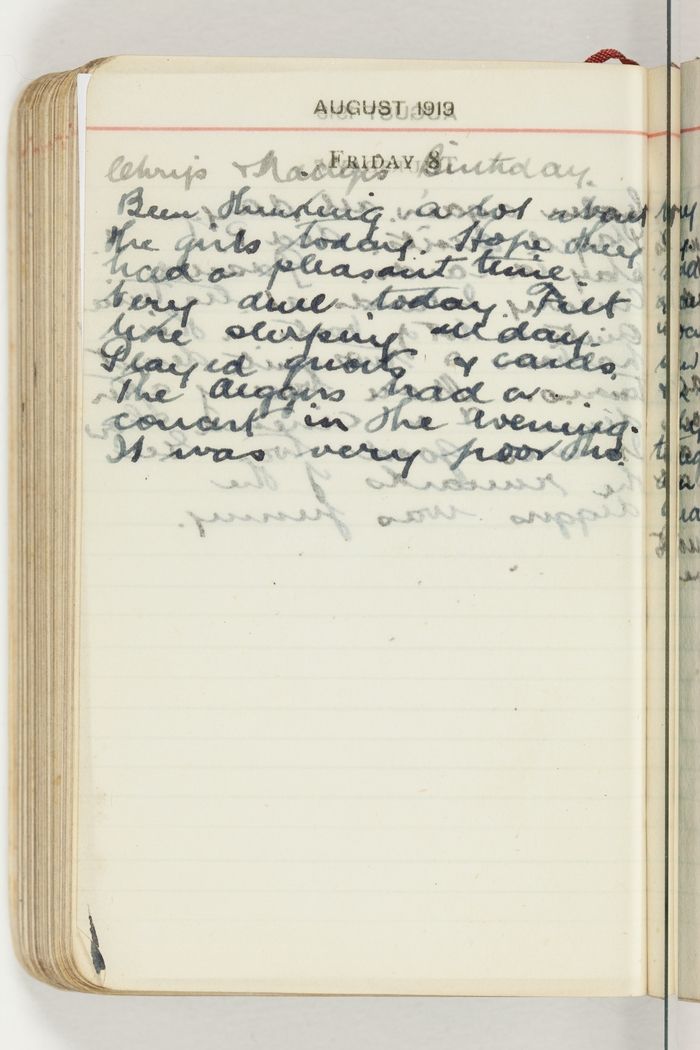 AUGUST 1919
FRIDAY 8
Chris & Madges Birthday.
Been thinking a lot about
the girls today. Hope they
had a pleasant time.
Very dull today. Felt
like sleeping all day.
Played quoits & cards.
The diggers had a
concert in the evening.
It was very poor tho.